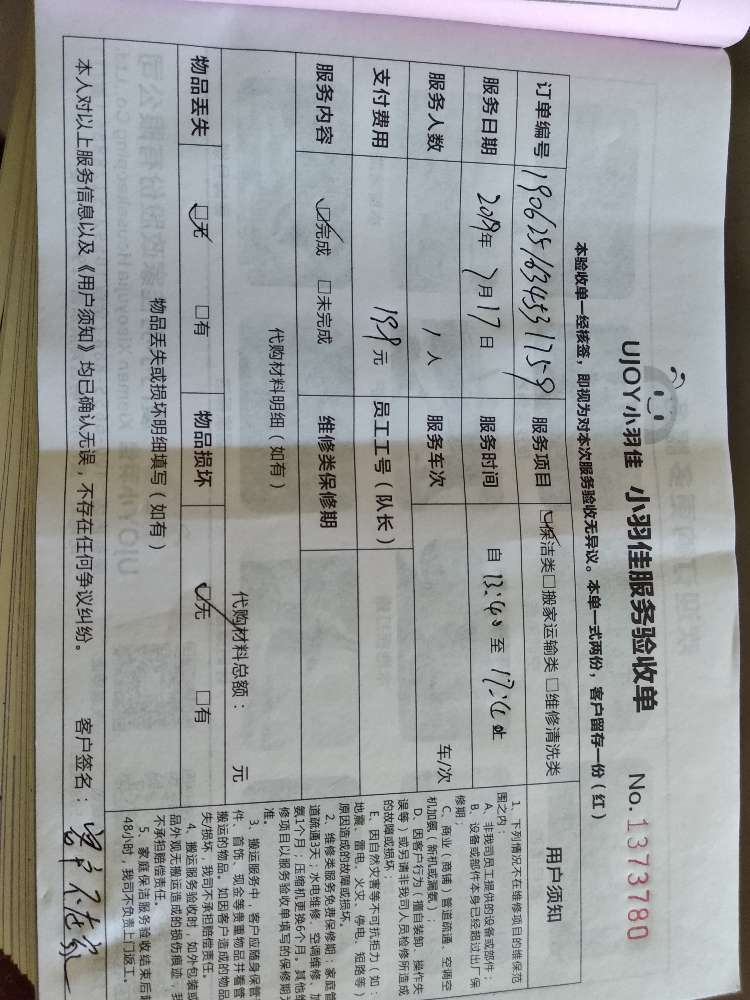 UJOY小羽佳 小羽佳服务验收单 No.1373780
本验收单一经核签，即视为对本次服务验收无异议。本单一式两份，客户留存一份（红）
订单编号 服务项目 ☑保洁类□搬家运输类 □维修清洗类
服务日期 2019年 7月17日 服务时间 自 13:40 至
服务人数 1人 服务车次 车/次
支付费用 198元 员工工号（队长）
服务内容 ☑完成 □未完成 维修类保修期
代购材料明细（如有） 代购材料总额： 元
物品丢失 ☑无 □有 物品损坏 ☑无 □有
物品丢失或损坏明细填写（如有）
本人对以上服务信息以及《用户须知》均已确认无误，不存在任何争议纠纷。 客户签名：客户不在家
用户须知
1、下列情况不在维修项目的维保范
围之内：
A、非我司员工提供的设备或部件；
B、设备或部件本身已经超过出厂保
修期；
C、商业（商铺）管道疏通、空调空
机加氨（新机或漏氨）；
D、因客户行为（擅自装卸、操作失
误等）或另请非我司人员检修所造成
的故障或损坏；
E、因自然灾害等不可抗拒力（如：
地震、雷电、火灾、停电、短路等）
原因造成的故障或损坏。
2、维修类服务免费保修期：家庭管
道疏通3天；水电维修、空调维修、加
氨1个月；压缩机更换6个月。其他维
修项目以服务验收单填写的保修期为
准。
3、搬运服务中，客户应随身保管
件、首饰、现金等贵重物品并看管
搬运的物品。如因客户造成的物品
失/损坏，我司不承担赔偿责任。
4、搬运服务验收时，如外包装或
品外观无搬运造成的损伤痕迹，我
不承担赔偿责任。
5、家庭保洁服务验收结束后超
48小时，我司不负责上门返工。